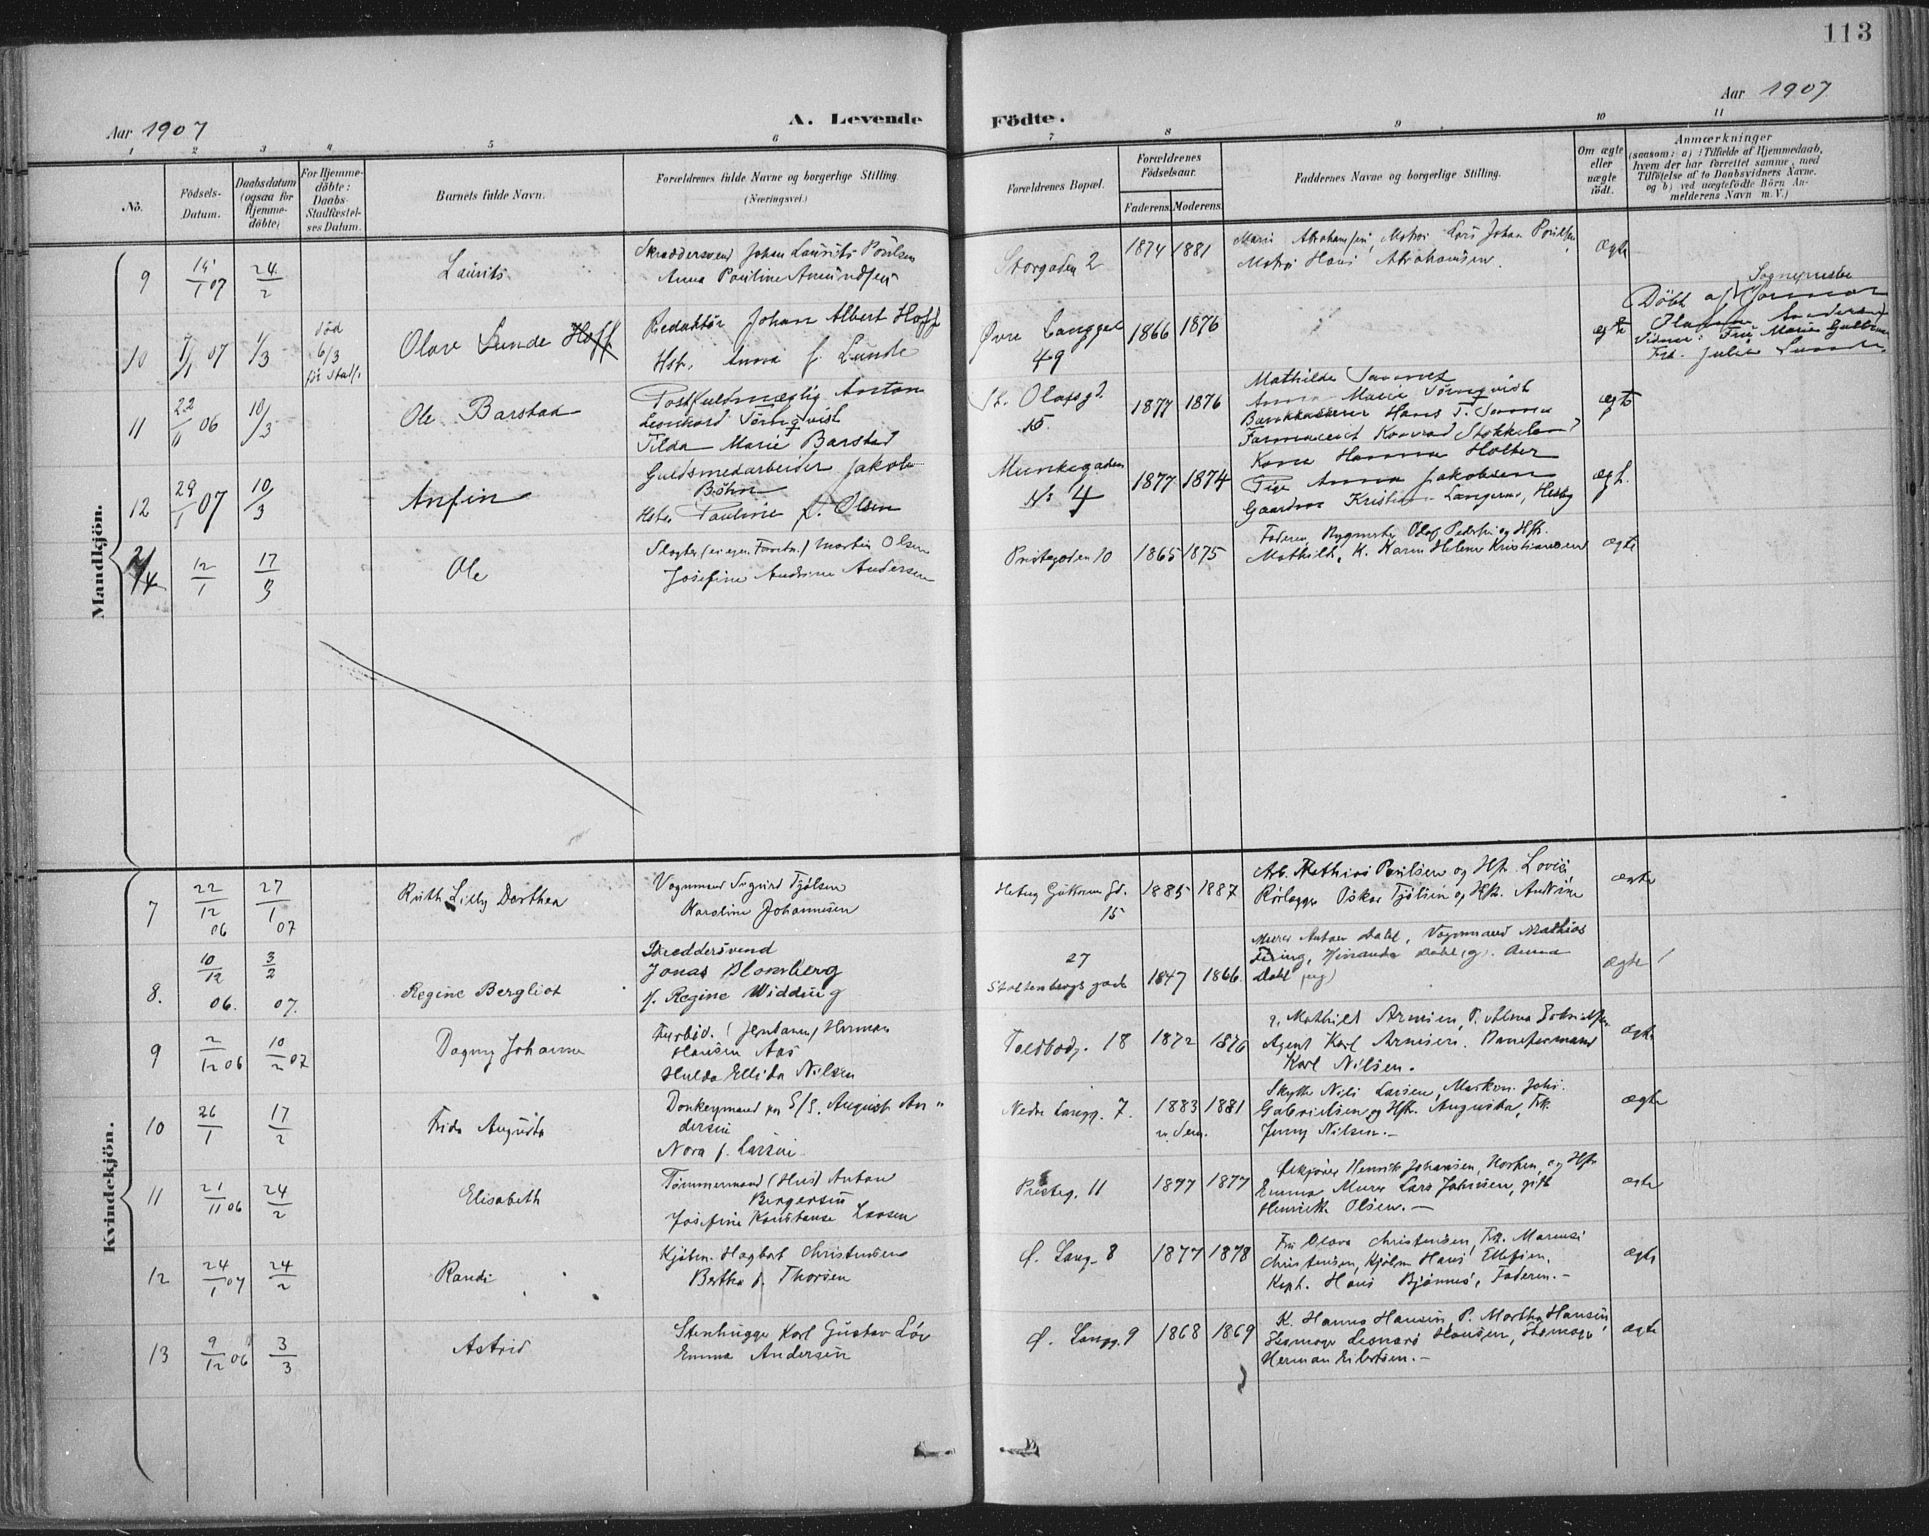 113
Aar 1907
A. Levende Födte.
Aar 1907
1 2 3 4 5 6 7 8 9 10 11
No.
Födsels-
Datum.
Daabsdatum
(ogsaa for
Hjemme-
döbte)
For Hjemme-
döbte:
Daabs-
Stadfæstel-
ses Datum.
Barnets fulde Navn.
Forældrenes fulde Navne og borgerlige Stilling.
(Næringsvei.)
Forældrenes Bopæl.
Forældrenes
Födselsaar.
Faderens. Moderens.
Faddernes Navne og borgerlige Stilling.
Om ægte
eller
uægte
födt.
Anmærkninger
(saasom: a) i Tilfælde af Hjemmedaab,
hvem der har forrettet samme, med
Tilföielse af to Daabsvidners Navne.
og b) ved uægtefödte Börn An-
melderens Navn m.V.)
Mandkjön.
9 15/1 07 24/2 Laurits
Skræddersvend Johan Laurits Poulsen
Anna Pauline Amundsen
Storgaden 2 1874 1881
Marie Abrahamsen, Matros Lars Johan Poulsen,
Matros Hans Abrahamsen.
Ægte
10 7/1 07 1/3
død
6/3
før Stadf.
Olav Lunde Hoff
Redaktør Johan Albert Hoff
Hstr. Anna f. Lunde
Øvre Langgd
49
1866 1876
ægte
Sogneprest
Døbt af
Vidner: Fru Marie
Frk. Julie Lunde.
11 22/11 06 10/3 Ole Barstad
Postfuldmægtig Anton
Leonhard Törnqvist
Tilda Marie Barstad
St. Olafsgd.
15.
1877 1876
Mathilde Sannes
Anna Marie Törnqvist
Bankkasserer Hans T. Sannes
Farmaceut Konrad Stokkeland
ægte
12 29/1 07 10/3 Anfin
Guldsmedarbeider Jakob
Böhn
Hstr. Pauline f. Olsen
Munkegaden
No 4
1877 1874
Kona Hanna Holter
Pige Anna Jakobsen
Gaardm. Kristian Langerud, Hesby
ægt.
12/1 17/3 Ole
Slagter (ei egen Forretn.) Martin Olsen
Josefine Andrine Andersen
Prestegaden 10 1865 1875
Faderen, Bygmester Olof Pedersen og Hstr.
Mathilde, K. Karen Helene Kristiansen
ægte
Kvindekjön.
7 22/12 06 27/1 07 Ruth Lilly Dorthea
Vognmand Sigurd Tjölsen
Karoline Johannesen
Hertug Guttorms Gd.
15
1885 1887
Arb. Mathias Poulsen og Hstr. Lovise,
Rörlægger Oskar Tjölsen og Hstr. Andrine
ægte
8. 10/12 06. 3/2 07. Regine Bergliot
Skræddersvend
Jonas Blomberg
f. Regine Widding
27
Stoltenbergs gade 1847 1866
Murer Anton Dahl, Vognmand Mathias
Fering, Hinanda Dahl (g). Anna
Dahl (ug)
ægte
9 2/12 06 10/2 07 Dagny Johanne
Fyrbød. (Jernbanen) Herman
Hansen Aas
Hulda Ellida Nilsen
Toldbodg. 18 1872 1876
g. Mathilde Arnesen, P. Alma Gabrielsen
Agent Karl Arnesen. Baneformand
Karl Nilsen.
ægte
10 26/1 17/2 Frida Augusta
Donkeymand paa S/S. August An-
dersen
Nora f. Larsen
Nedre Langg. 7. 1883 1881
Skytter Nils Larsen, Maskin. Johs.
Gabrielsen og Hstr. Augusta, Frk.
Jenny Nilsen.-
ægte
11 21/11 06 24/2 Elisabeth
Tømmermand (Hus) Anton
Bergersen
Josefine Konstanse Larsen
Presteg. 11 1877 1877
Henrik Johansen, Horten, og Hstr
Emma, Murer Lars Johnsen, gift
Henrikke Olsen.-
ægte
12 24/1 07 24/2 Randi
Kjøbm. Hagbart Christensen
Bertha f. Thorsen
Ø. Lang. 8 1877 1878
Fru Olava Christensen, Frk. Marensi
Christensen, Kjøbm Hans Ellefsen,
Kapt. Hans Bjönnes, Faderen.-
ægte
13 9/12 06 3/3 Astrid
Stenhugger Karl Gustav Löv
Emma Andersen
Ø. Langg. 9 1868 1869
K. Hanna Hansen, P. Martha Hansen,
Skomager Leonard Hansen, Skomager
Herman Eilertsen.-
ægte